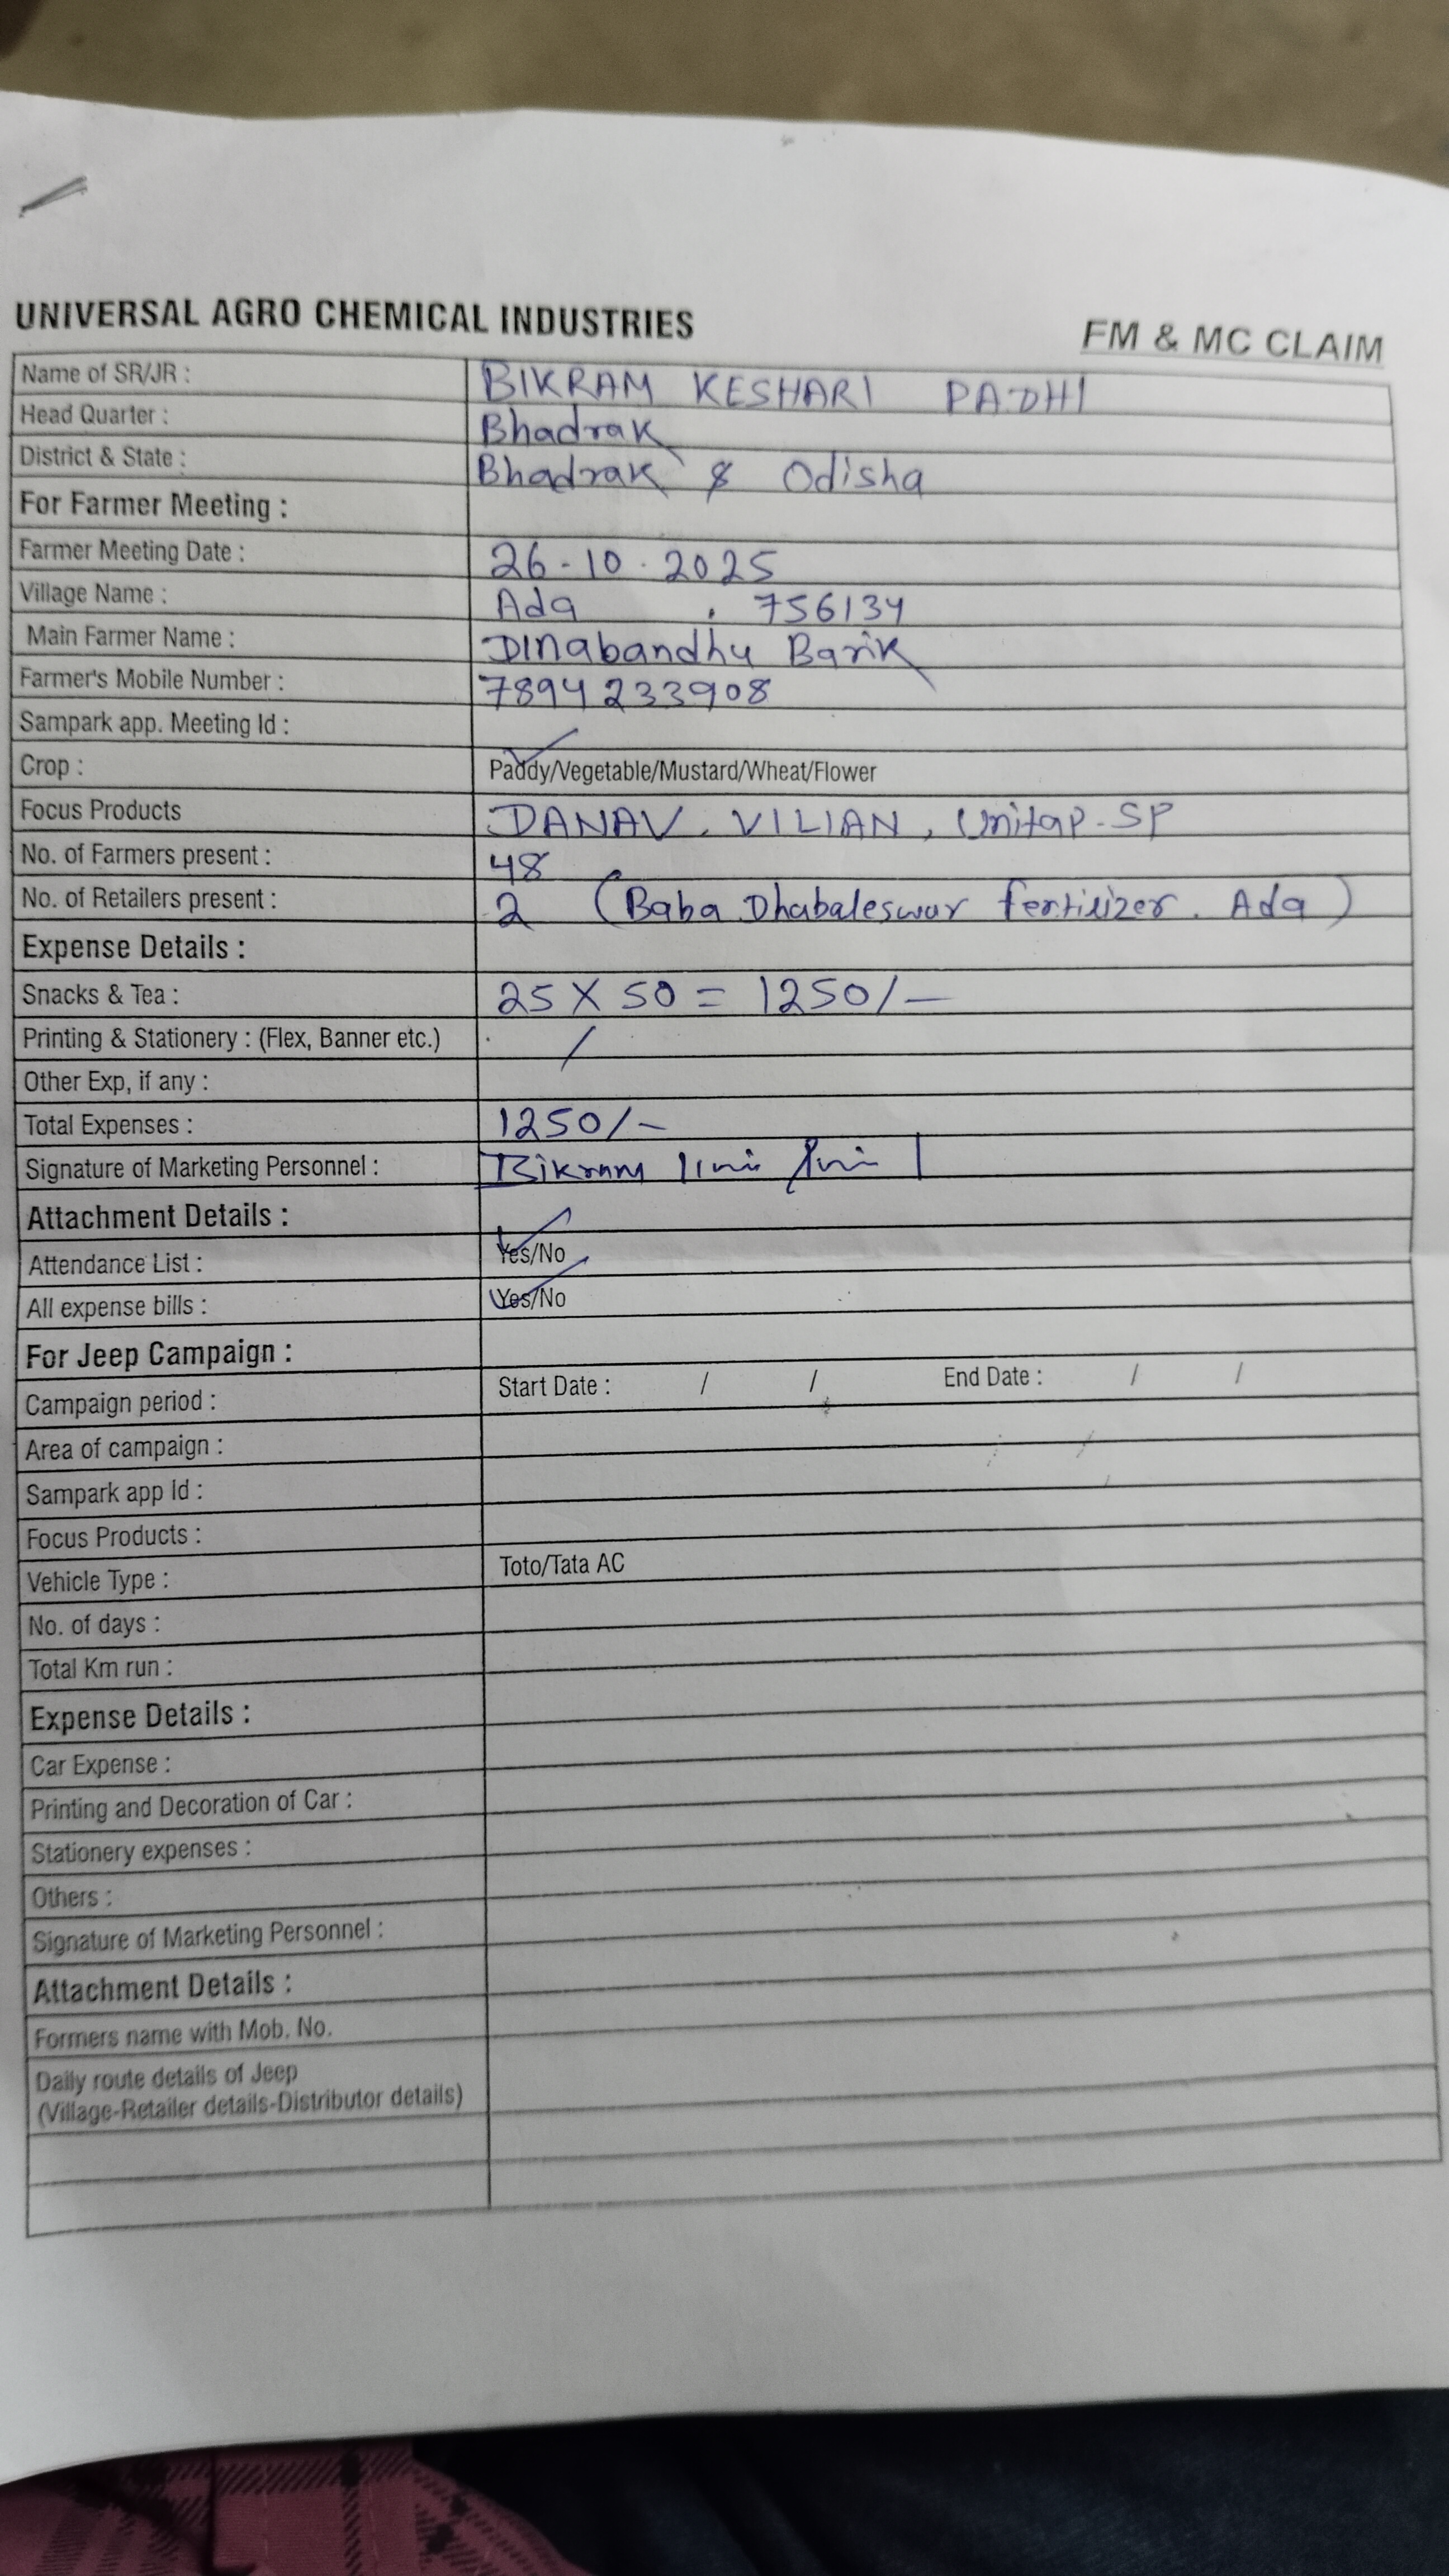 UNIVERSAL AGRO CHEMICAL INDUSTRIES
FM & MC CLAIM
Name of SR/JR : BIKRAM KESHARI PADHI
Head Quarter : Bhadrak
District & State : Bhadrak & Odisha
For Farmer Meeting :
Farmer Meeting Date : 26-10-2025
Village Name : Ada , 756134
Main Farmer Name : Dinabandhu Barik
Farmer's Mobile Number : 7894233908
Sampark app. Meeting Id :
Crop : Paddy/Vegetable/Mustard/Wheat/Flower
Focus Products DANAV, VILIAN, Unitap-SP
No. of Farmers present : 48
No. of Retailers present : 2 (Baba Dhabaleswar fertilizer. Ada)
Expense Details :
Snacks & Tea : 25 X 50 = 1250/-
Printing & Stationery : (Flex, Banner etc.) /
Other Exp, if any :
Total Expenses : 1250/-
Signature of Marketing Personnel : Bikram
Attachment Details :
Attendance List : Yes/No
All expense bills : Yes/No
For Jeep Campaign :
Campaign period : Start Date : / / End Date : / /
Area of campaign :
Sampark app Id :
Focus Products :
Vehicle Type : Toto/Tata AC
No. of days :
Total Km run :
Expense Details :
Car Expense :
Printing and Decoration of Car :
Stationery expenses :
Others :
Signature of Marketing Personnel :
Attachment Details :
Formers name with Mob. No.
Daily route details of Jeep
(Village-Retailer details-Distributor details)